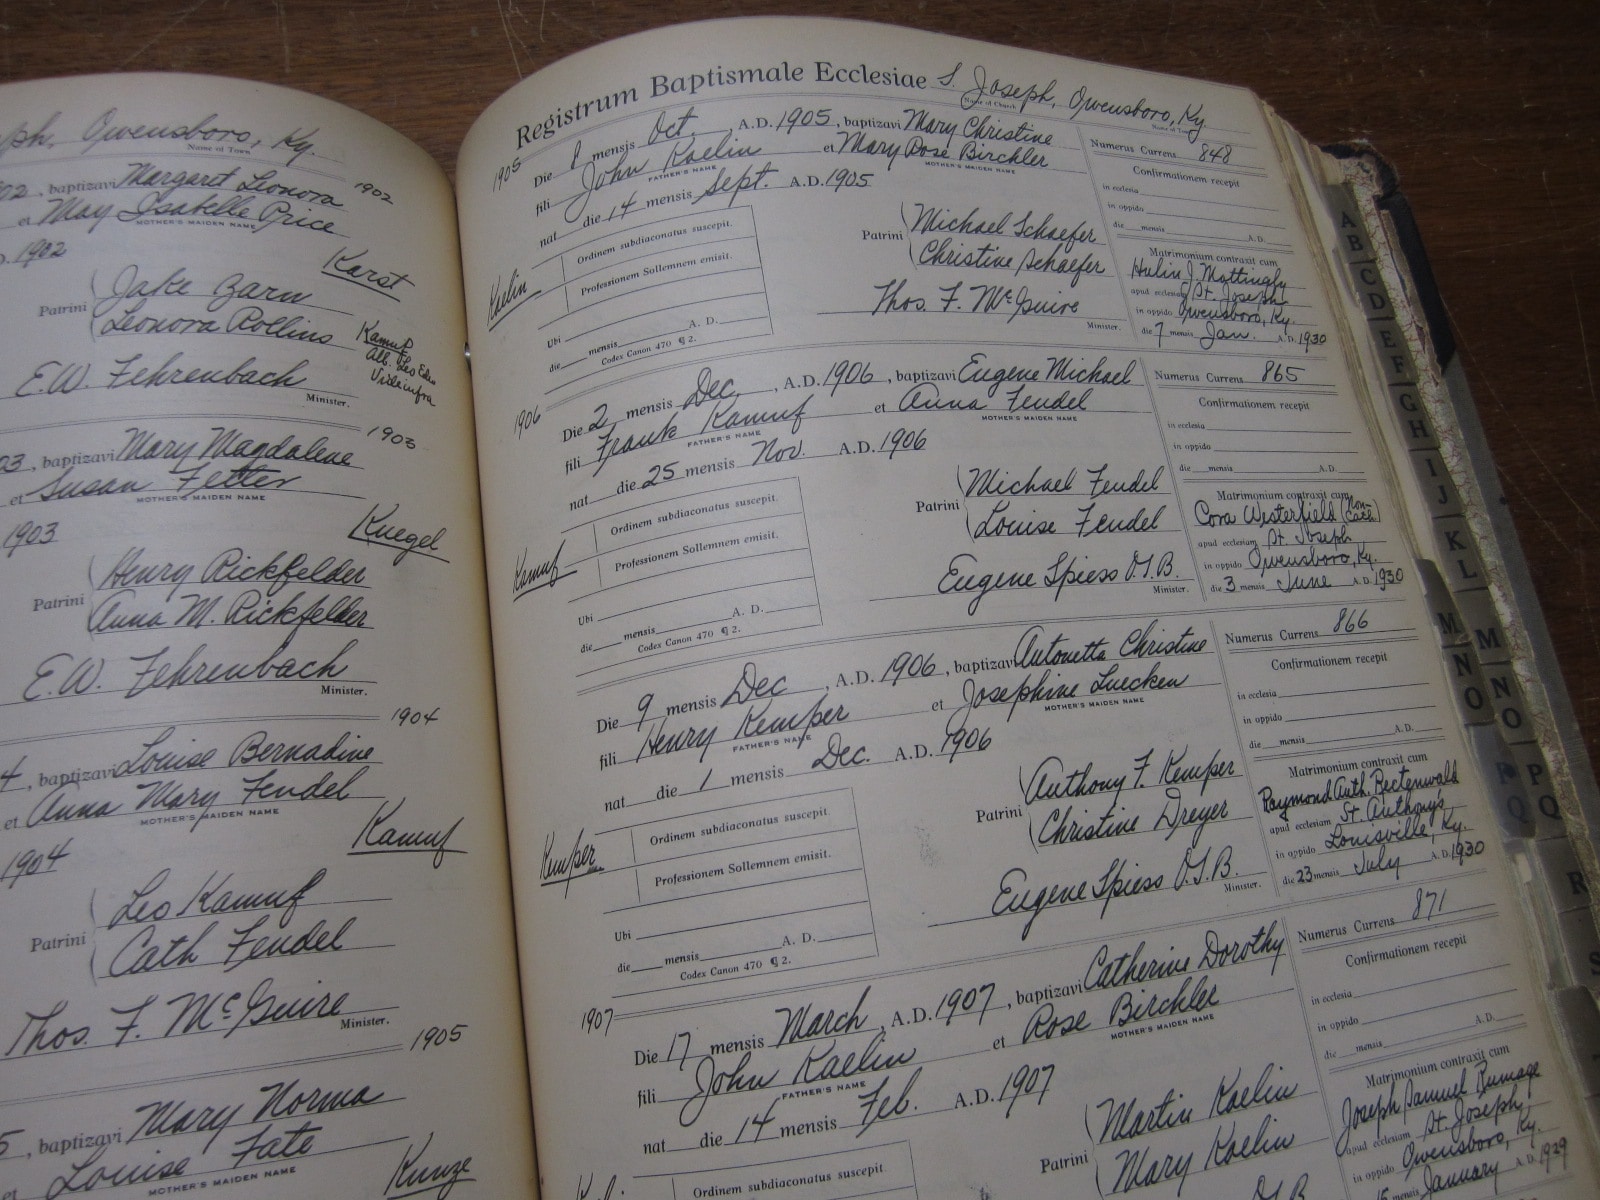 Owensboro, Ky.
Name of Town
02, baptizavi Margaret Leonora
1902
et May Isabelle Price
MOTHER'S MAIDEN NAME
1902
Karst
Patrini
Jake Zarn
Leonora Rollins
Kamuf
E.W. Fehrenbach
Minister.
1903
03, baptizavi Mary Magdalene
et Susan Fetter
MOTHER'S MAIDEN NAME
1903
Kuegel
Patrini
Henry Rickfelder
Anna M. Rickfelder
E.W. Fehrenbach
Minister.
1904
4, baptizavi Louise Bernadine
et Anna Mary Fendel
MOTHER'S MAIDEN NAME
1904
Kamuf
Patrini
Leo Kamuf
Cath Fendel
Thos. F. McGuire
Minister.
1905
5, baptizavi Mary Norma
et Louise Fate
MOTHER'S MAIDEN NAME
Kunze
Registrum Baptismale Ecclesiae S. Joseph, Owensboro, Ky.
Name of Church
Name of Town
1905
Die 8 mensis Oct. A.D. 1905, baptizavi Mary Christine
fili John Kaelin et Mary Rose Birchler
FATHER'S NAME
MOTHER'S MAIDEN NAME
nat die 14 mensis Sept. A.D. 1905
Kaelin
Ordinem subdiaconatus suscepit.
Professionem Sollemnem emisit.
Ubi
A. D.
die mensis
Codex Canon 470 ¶ 2.
Patrini
Michael Schaefer
Christine Schaefer
Thos. F. McGuire
Minister.
Numerus Currens 848
Confirmationem recepit
in ecclesia
in oppido
die mensis A.D.
Matrimonium contraxit cum
Hulin J Mattingly
apud ecclesiam St. Joseph
in oppido Owensboro, Ky.
die 7 mensis Jan. A.D. 1930
1906
Die 2 mensis Dec, A.D. 1906, baptizavi Eugene Michael
fili Frank Kamuf et Anna Fendel
FATHER'S NAME
MOTHER'S MAIDEN NAME
nat die 25 mensis Nov. A.D. 1906
Kamuf
Ordinem subdiaconatus suscepit.
Professionem Sollemnem emisit.
Ubi
A. D.
die mensis
Codex Canon 470 ¶ 2.
Patrini
Michael Fendel
Louise Fendel
Eugene Spiess O.S.B.
Minister.
Numerus Currens 865
Confirmationem recepit
in ecclesia
in oppido
die mensis A.D.
Matrimonium contraxit cum
Cora Westerfield (Non-Cath)
apud ecclesiam St. Joseph
in oppido Owensboro, Ky.
die 3 mensis June A.D. 1930
Die 9 mensis Dec, A.D. 1906, baptizavi Antonetta Christine
fili Henry Kemper et Josephine Luecken
FATHER'S NAME
MOTHER'S MAIDEN NAME
nat die 1 mensis Dec. A.D. 1906
Kemper
Ordinem subdiaconatus suscepit.
Professionem Sollemnem emisit.
Ubi
A. D.
die mensis
Codex Canon 470 ¶ 2.
Patrini
Anthony F. Kemper
Christine Dreyer
Eugene Spiess O.S.B.
Minister.
Numerus Currens 866
Confirmationem recepit
in ecclesia
in oppido
die mensis A.D.
Matrimonium contraxit cum
Raymond Anth. Rectenwald
apud ecclesiam St. Anthony's
in oppido Louisville, Ky.
die 23 mensis July A.D. 1930
1907
Die 17 mensis March, A.D. 1907, baptizavi Catherine Dorothy
fili John Kaelin et Rose Birchler
FATHER'S NAME
MOTHER'S MAIDEN NAME
nat die 14 mensis Feb. A.D. 1907
Ordinem subdiaconatus suscepit.
Patrini
Martin Kaelin
Mary Kaelin
Numerus Currens 871
Confirmationem recepit
in ecclesia
in oppido
die mensis A.D.
Matrimonium contraxit cum
Joseph Samuel Rumage
apud ecclesiam St. Joseph
in oppido Owensboro, Ky.
15 mensis January A.D. 1929
A
B
C
D
E
F
G
H
I
J
K
L
M
N
O
P
Q
M
N
O
P
Q
R
S